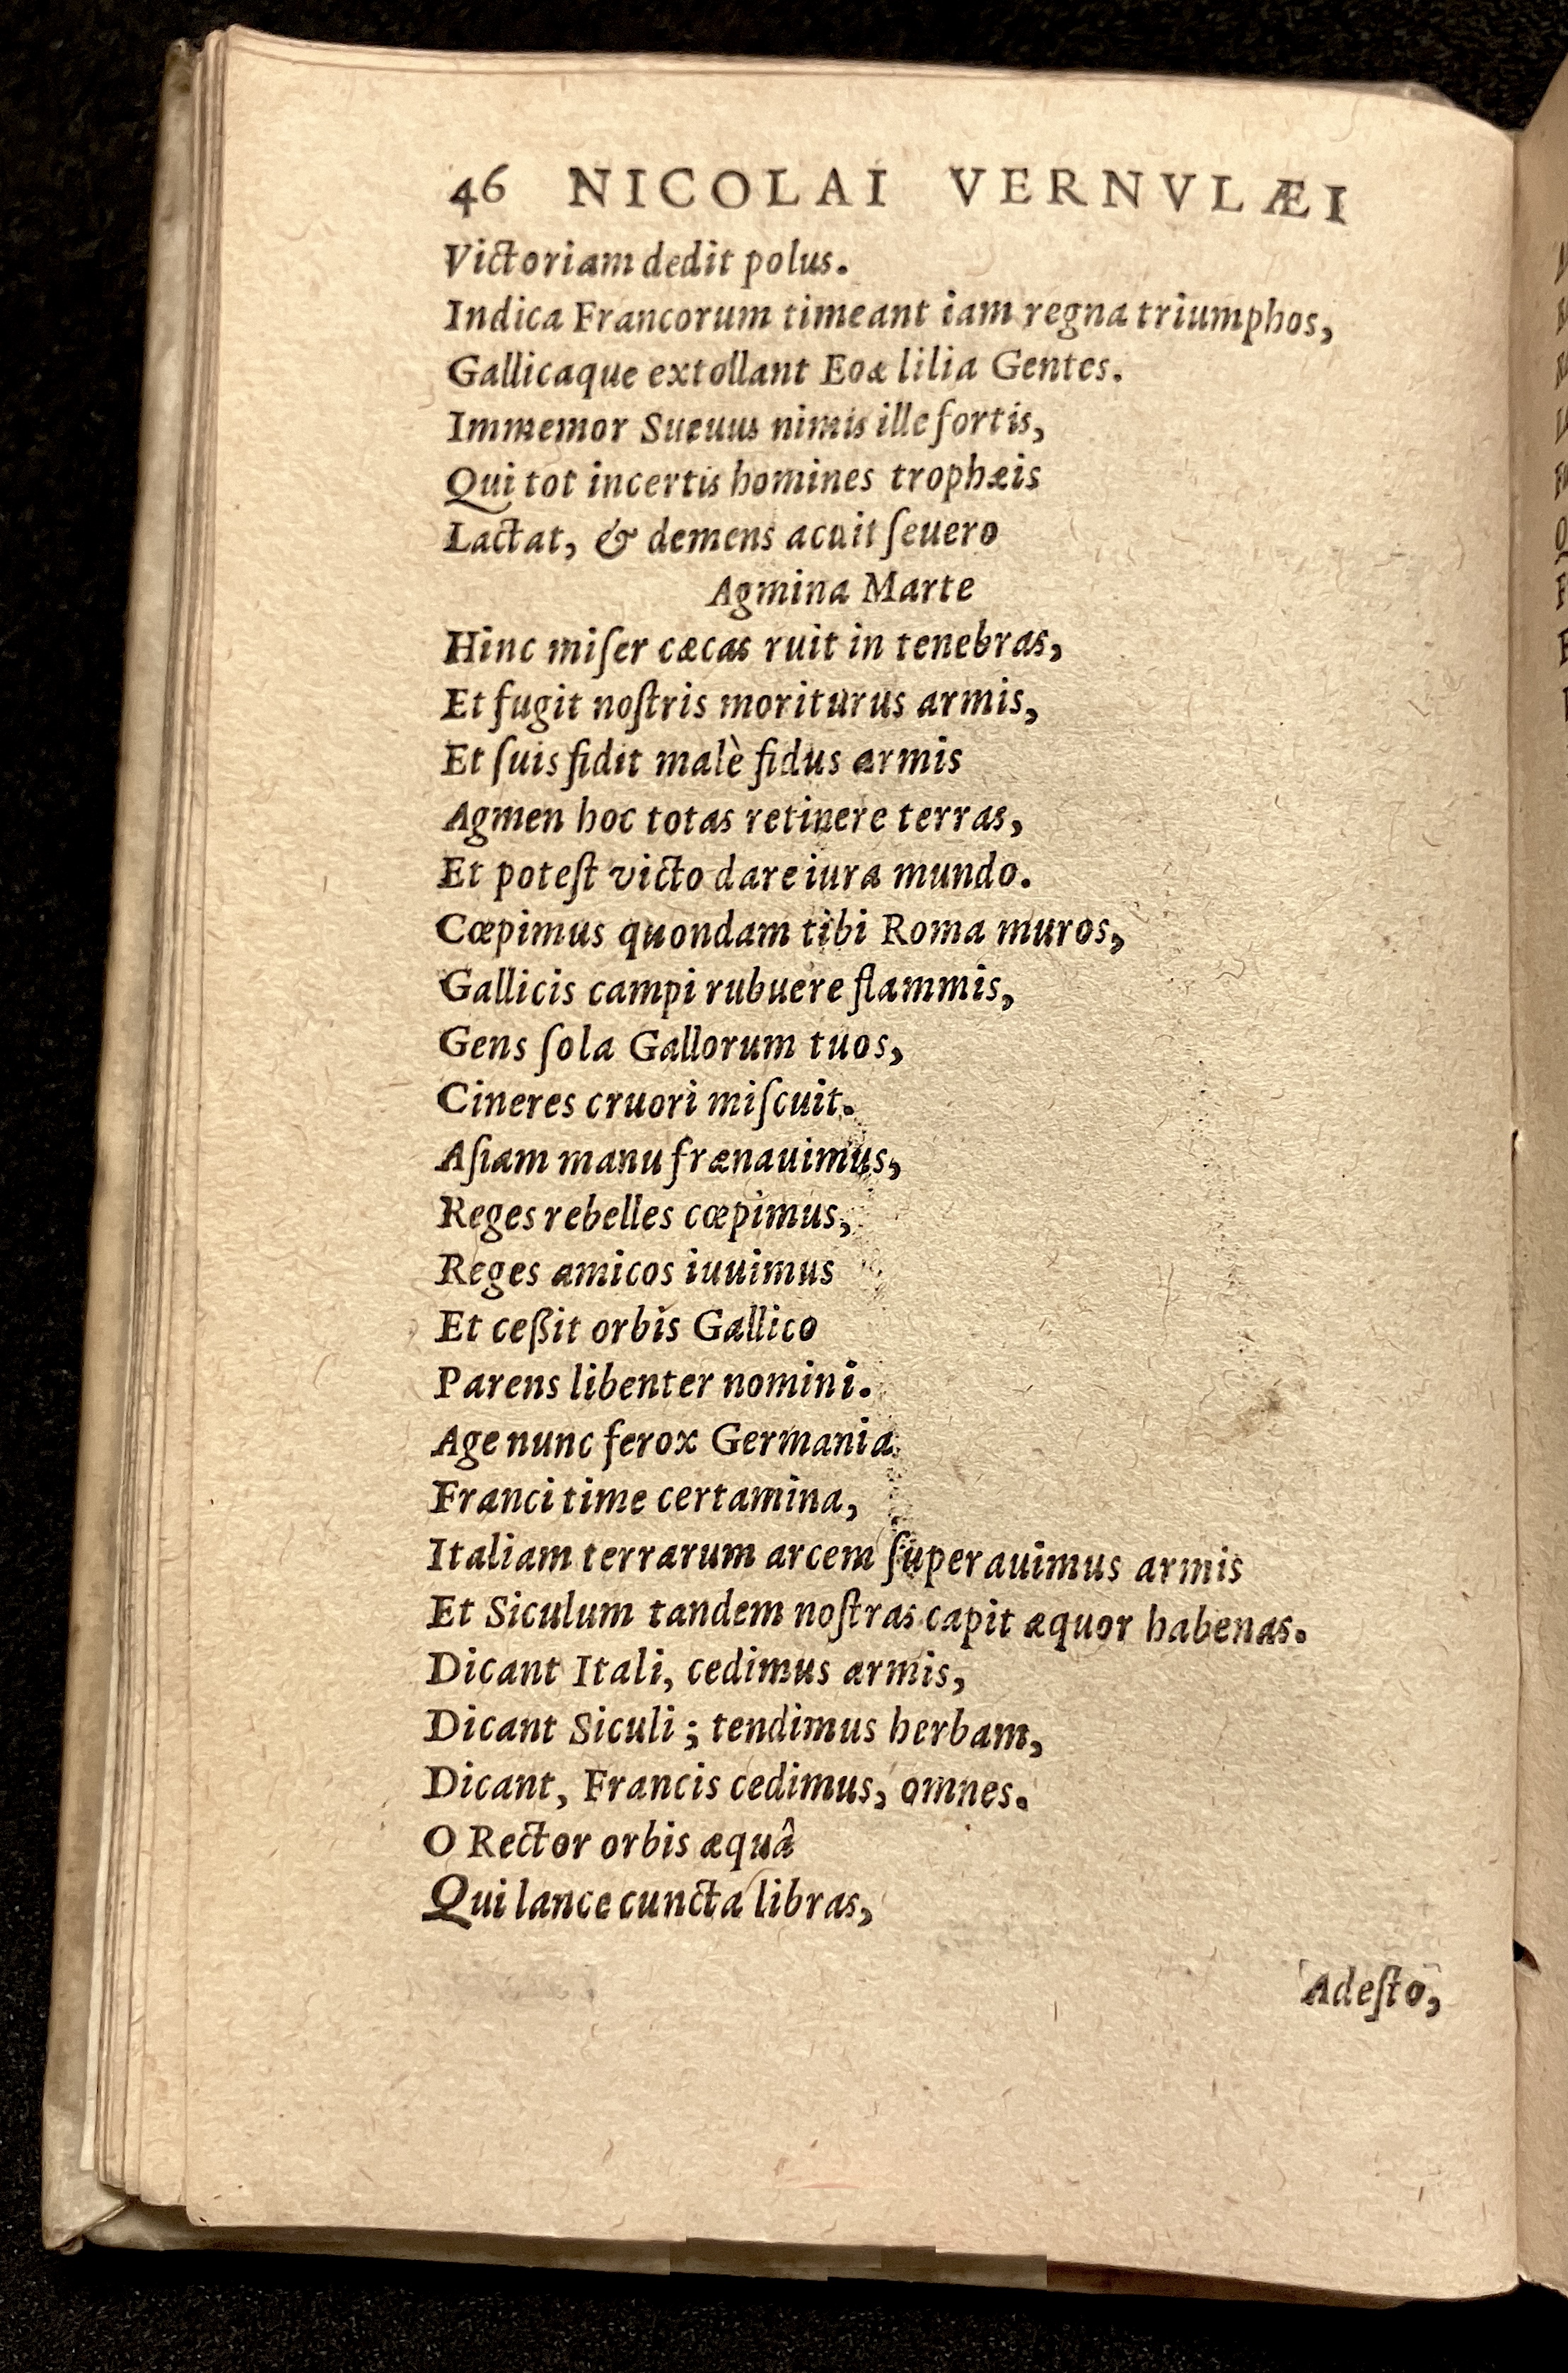 46 NICOLAI VERNVLÆI
Victoriam dedit polus.
Indica Francorum timeant iam regna triumphos,
Gallicaque extollant Eoæ lilia Gentes.
Immemor Sueuus nimis ille fortis,
Qui tot incertis homines trophæis
Lactat, & demens acuit ſeuero
Agmina Marte
Hinc miſer cæcas ruit in tenebras,
Et fugit noſtris moriturus armis,
Et ſuis fidit malè fidus armis
Agmen hoc totas retinere terras,
Et poteſt victo dare iura mundo.
Cœpimus quondam tibi Roma muros,
Gallicis campi rubuere flammis,
Gens ſola Gallorum tuos,
Cineres cruori miſcuit.
Aſiam manu frænauimus,
Reges rebelles cœpimus,
Reges amicos iuuimus
Et ceßit orbis Gallico
Parens libenter nomini.
Age nunc ferox Germania
Franci time certamina,
Italiam terrarum arcem ſuperauimus armis
Et Siculum tandem noſtras capit æquor habenas.
Dicant Itali, cedimus armis,
Dicant Siculi; tendimus herbam,
Dicant, Francis cedimus, omnes.
O Rector orbis æquâ
Qui lance cuncta libras,
Adeſto,